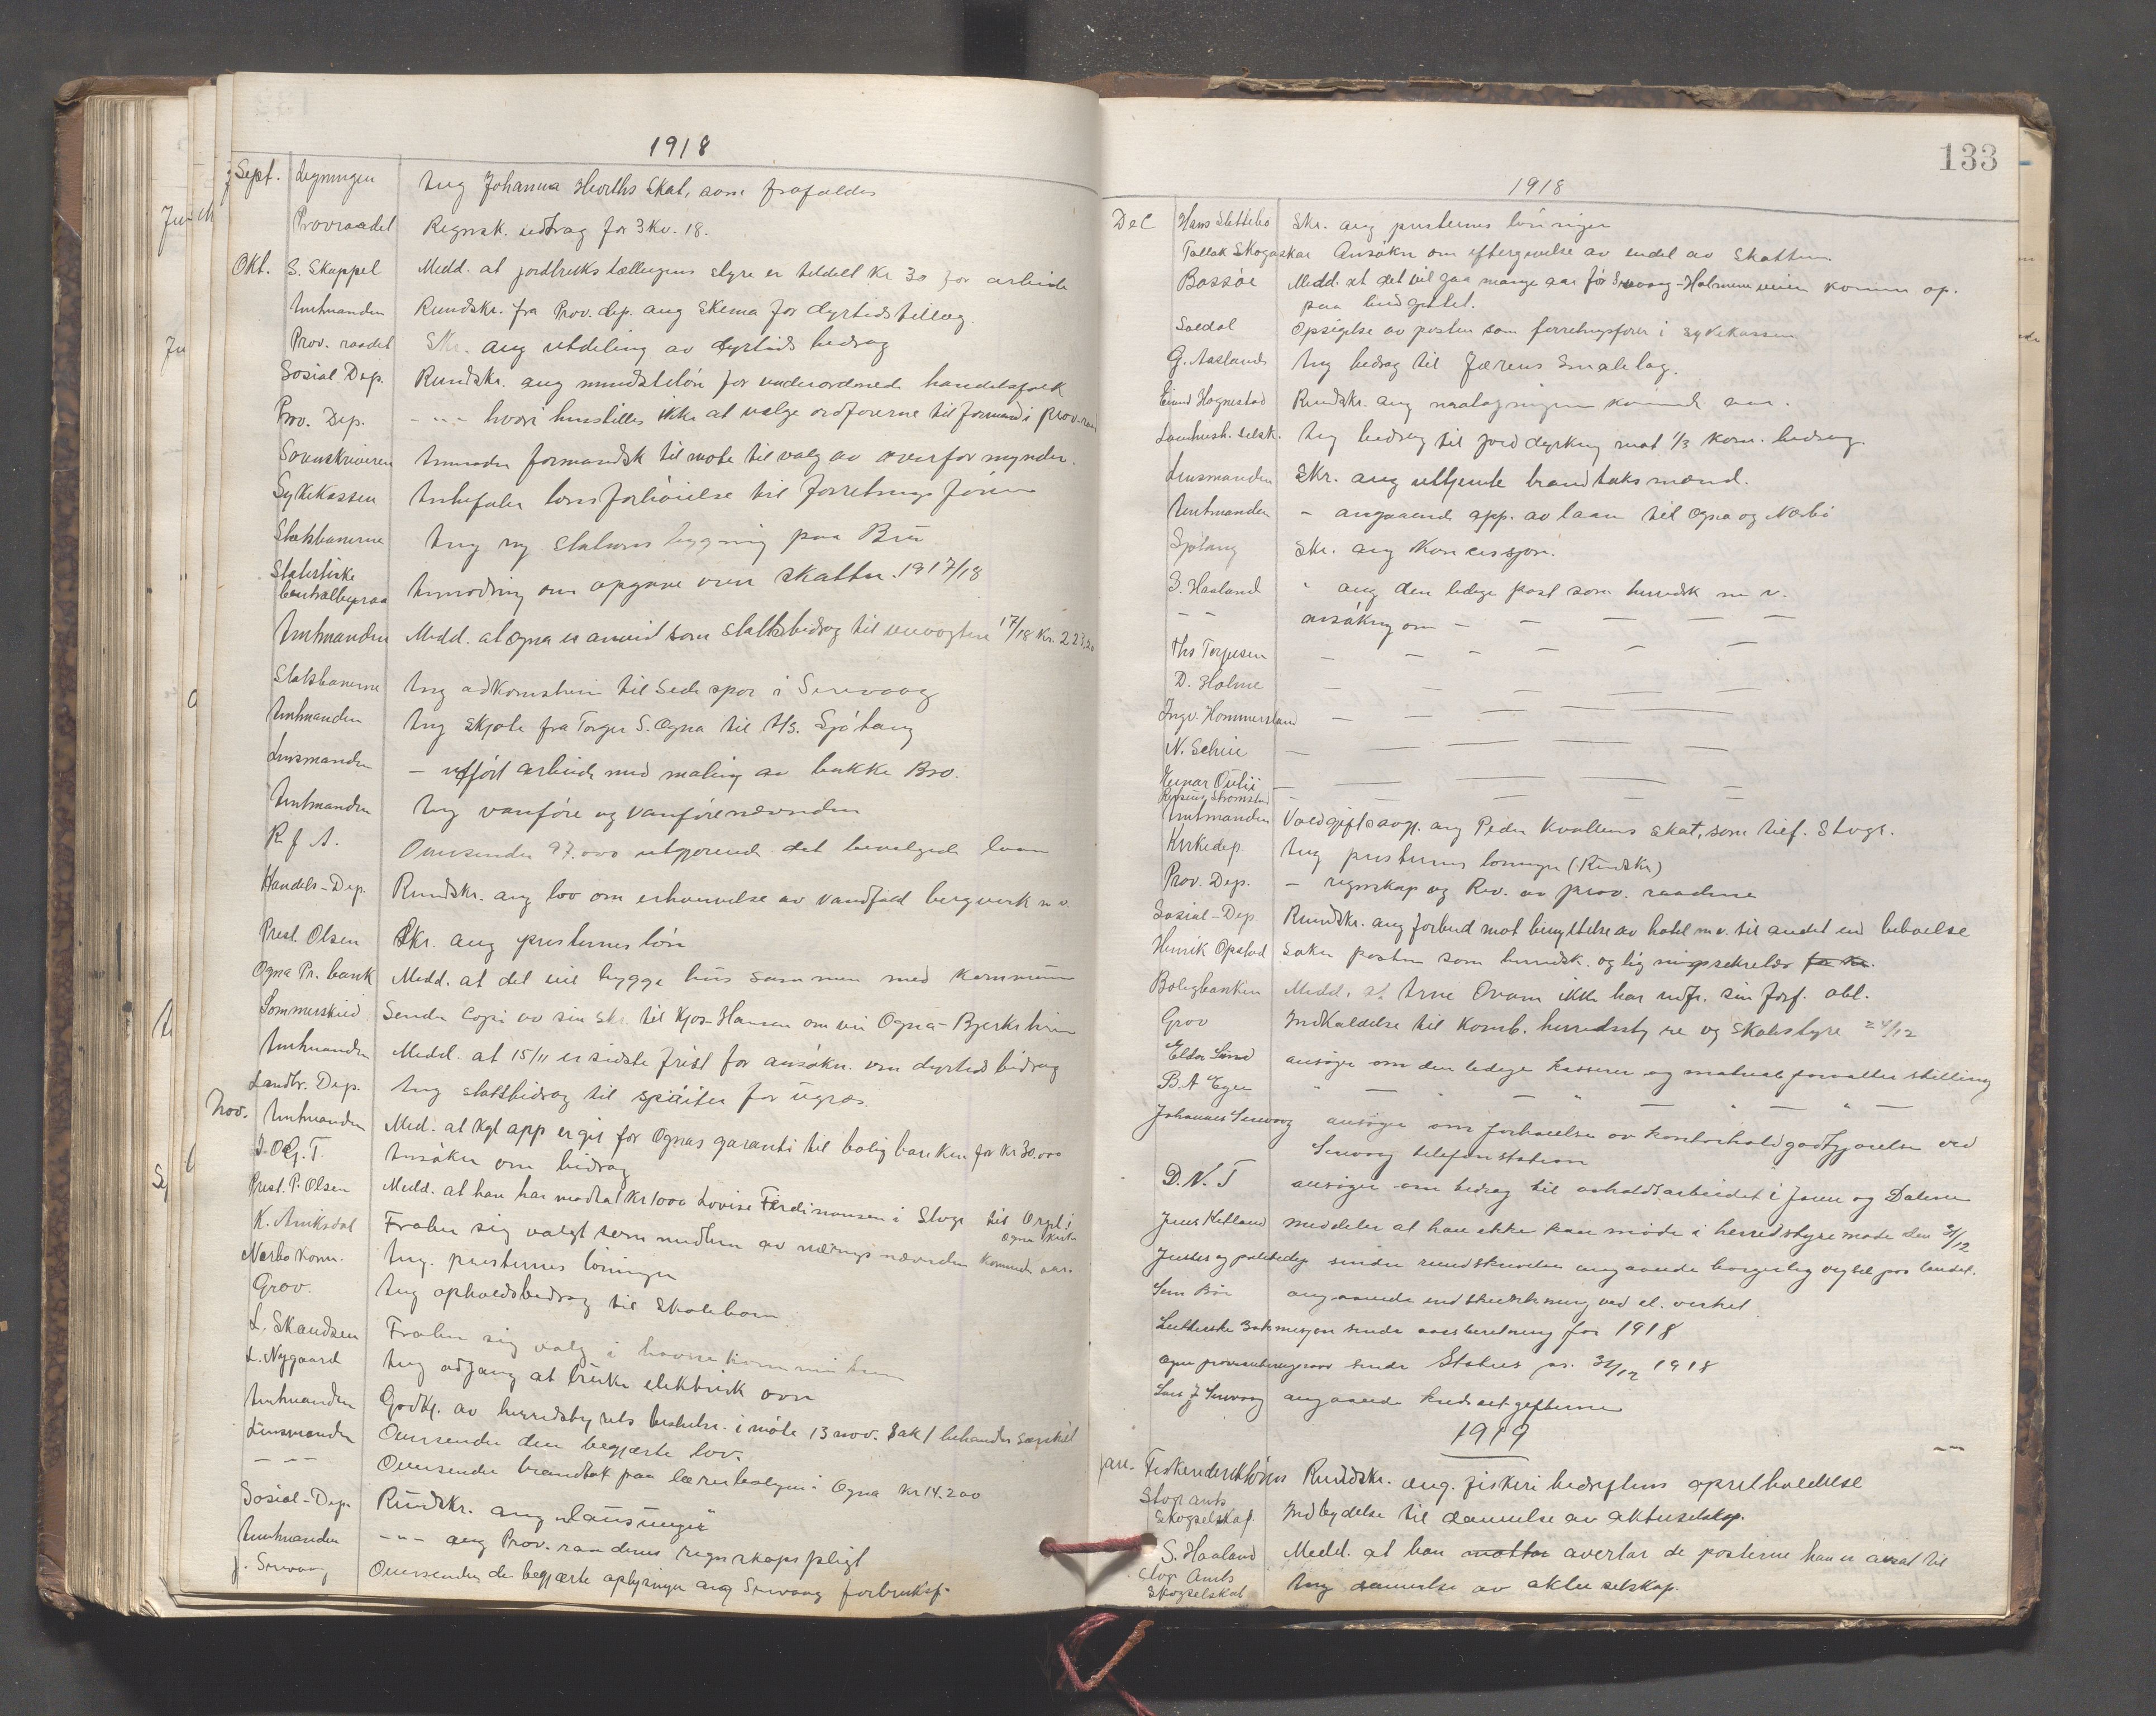 1918
Sept. Ligningen Ang Johanna Hiorths Skat, som frafaldes
Provraadet Regnsk. utdrag for 3 Kv. 18.
Okt. S. Skappel Medd. at jordbruks tællingens styre er tildelt Kr 30 for arbeide
Amtmanden Rundskr. fra Prov. dep. ang Skema for dyrtidstillæg
Prov. raadet Skr. ang utdeling av dyrtids bidrag
Sosial Dep. Rundskr. ang mindstelön for underordnede handelsfolk
Prov. Dep. - " - hvori henstilles ikke at vælge ordförerne til formand i prov. raad
Sorenskriveren Anmoder formandsk til möte til valg av overformynder.
Sykekassen Anbefaler lönsforhöielse til forretnings förer
Statsbanerne Ang ny stations bygning paa Bru
Statistiske Centralbyraa Anmodning om opgave over skatten. 1917/18
Amtmanden Medd. at Ogna er anvist som Statsbidrag til veivogtere 17/18 Kr. 223,20
Statsbanerne Ang adkomstvei til Sidespor i Sirevaag
Amtmanden Ang Skjöte fra Torger S. Ogna til A/S. Sjötang
Lensmanden - utfört arbeide med maling av bakke Bro.
Amtmanden Ang vanföre og vanförenævnden
R f A. Oversender 97.000 utgjörende det bevilgede laan
Handels-Dep. Rundskr. ang lov om erhvervelse av vandfald bergverk m v.
Prest. Olsen Skr. ang presternes lön
Ogna Pr. bank Medd. at det vil bygge hus sammen med kommunen
Sommerskild Sender Copi av sin skr. til Kjos-Hansen om vei Ogna-Bjerkreim
Amtmanden Medd. at 15/11 er sidste frist for ansökn. om dyrtids bidrag
Landbr. Dep. Ang statsbidrag til spröiter for ugræs.
Nov. Amtmanden Med. at Kgl app er git for Ognas garanti til boligbanken for Kr 30.000
I. O. G. T. Ansöker om bidrag
Prest. P. Olsen Medd. at han har mottat Kr 1000 Lovise Ferdinansen i Stvgr til Orgel i Ogna Kirke
K. Aniksdal Fraber sig valgt som medlem av nærings nævnden kommende aar.
Nærbø Komm. Ang. presternes löninger
Grov. Ang opholdsbidrag til Skolebarn
L. Skandsen Fraber sig valg i havnekommissionen
L. Nygaard Ang adgang at bruke elektrisk ovn
Amtmanden Godkj. av herredstyrets beslutn. i möte 13 nov. Sak 1 behandles særskilt
Lensmanden Oversender den begjærte lov.
- " - Oversender brandtakst paa lærerboligen i Ogna Kr 14.200
Sosial-Dep. Rundskr. ang „Lausunger"
Amtmanden - " - ang Prov. raadenes regnskapspligt
J. Sirevaag Oversender de begjærte oplysninger ang Sirevaag forbruksf.
133
1918
Dec Hans Slettebø Skr. ang presternes löninger
Tallak Skogaskar Ansökn om eftergivelse av endel av Skatten
Bassöe Medd. at det vil gaa mange aar för Sirevaag-Holmeveien kommer op.
paa budgettet.
Opsigelse av posten som forretningsförer i sykekassen
G. Aasland Ang bidrag til Jærens Smalelag.
Eivind Hognestad Rundskr. ang kommende aar.
Landhush. selsk. Ang bidrag til jord dyrking mot 1/3 kom. bidrag.
Lensmanden Skr. ang uttjente brandtaksmænd.
Amtmanden - angaaende app. av laan til Ogna og Nærbö
Sjötang Skr. ang Koncessjon.
S. Haaland " ang den ledige post som herredsk m v.
- - ansökning om - - - - -
Ths Torjusen - - - - - -
D. Holme - - - - -
Ingv. Hommersland - - - - -
N. Seliie - - - - -
- - - -
- - - -
Amtmanden Voldgiftsavgj. ang Peder Kvallens skat, som tilf. Stvgr.
Kirkedep. Ang presternes löninger (Rundskr)
Prov. Dep. - regnskap og Rev. av prov. raadene
Sosial-Dep. Rundskr. ang forbud mot benyttelse av hotel m.v. til andet end beboelse
Henrik Opstad söker posten som herredsk. og ligningssekretær
Boligbanken Medd. at Arne Ovam ikke har indfr. sin forf. obl.
Grov Indkaldelse til Komb. herredsstyre og skolestyre 24/12
ansöger om den ledige kasserer og materialforvalter stilling
B. A Ege " - " - " - " -
Johannes Sirevaag ansöger om forhöielse av Kontorholdgodtgjörelse ved
Sirevaag telefonstation
D. N. T ansöger om bidrag til avholdsarbeidet i Jæren og Dalene
Jens Ketland meddeler at han ikke kan möde i herredstyremöde den 31/12
Justis og politidep sender rundskrivelse angaaende borgerlig vigsel paa landet.
angaaende indskrænkning ved el. verket
Lutherske sender aarsberetning for 1918
Ogna provianteringsraad sender Status pr. 31/12 1918
Lars J Sirevaag angaaende
1919
jan. Fiskeridirektören Rundskr. ang. fiskeri bedriftens opretholdelse
Stvgr amts Skogselskap. Indbydelse til dannelse av aktieselskap.
S. Haaland Medd. at han mottar overtar de posterne han er ansat til
Stvgr Amts Skogselskab Ang dannelse av aktie selskap.